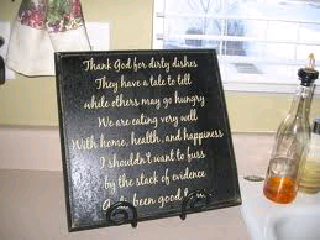 Thank God for dirty dishes
They have a tale to tell
while others may go hungry
We are eating very well
With home, health, and happiness
I shouldn't want to fuss
by the stack of evidence
been good